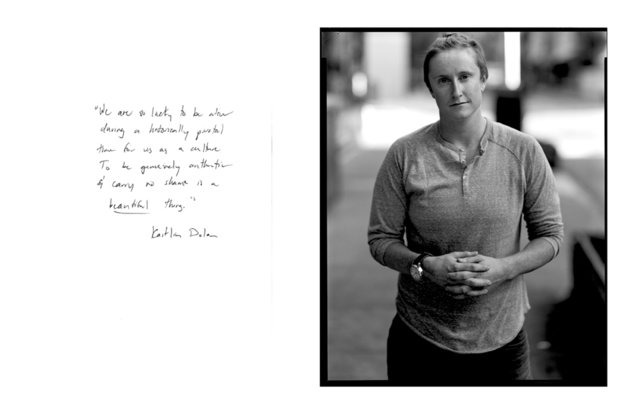 "We are so lucky to be alive
during a historically pivotal
time for us as a culture
To be genuinely authentic
& carry no shame is a
beautiful thing."
Kaitlin Dolan